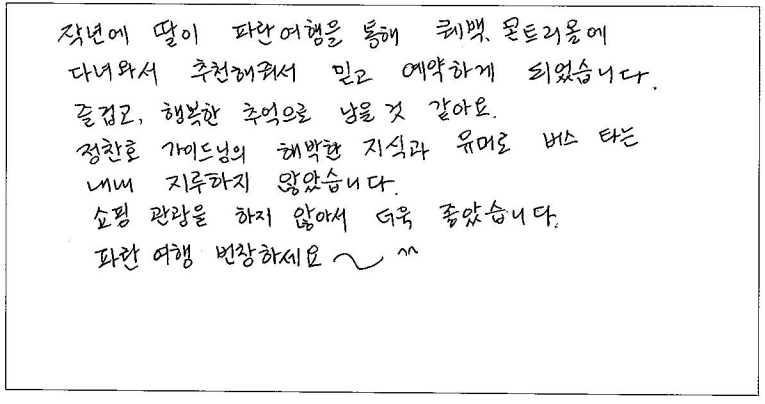 작년에 딸이 파란여행을 통해 퀘백, 몬트리올에
다녀와서 추천해줘서 믿고 예약하게 되었습니다.
즐겁고, 행복한 추억으로 남을 것 같아요.
정찬호 가이드님의 해박한 지식과 유머로 버스 타는
내내 지루하지 않았습니다.
쇼핑 관광을 하지 않아서 더욱 좋았습니다.
파란 여행 번창하세요~ ^^